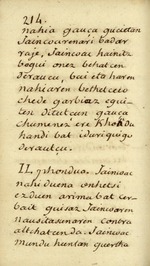 214.
nahia gauça gucietan
Jaincoarenari badar
raje, Jaincoac hainitz
begui onez behatcen
deraucu, bai eta haren
nahiaren bethetceco
chede garbiaz egui-
ten ditutcun gauça
chumenez ere
handi bat iduriquigo
derautçu.
II. phonduo. Jaincoac
nahi duena onhetsi
ezduen arima bat cer-
bait guisaz Jaincoaren
nausitasunaren contra
altchatcen da. Jaincoac
mundu huntan guertha